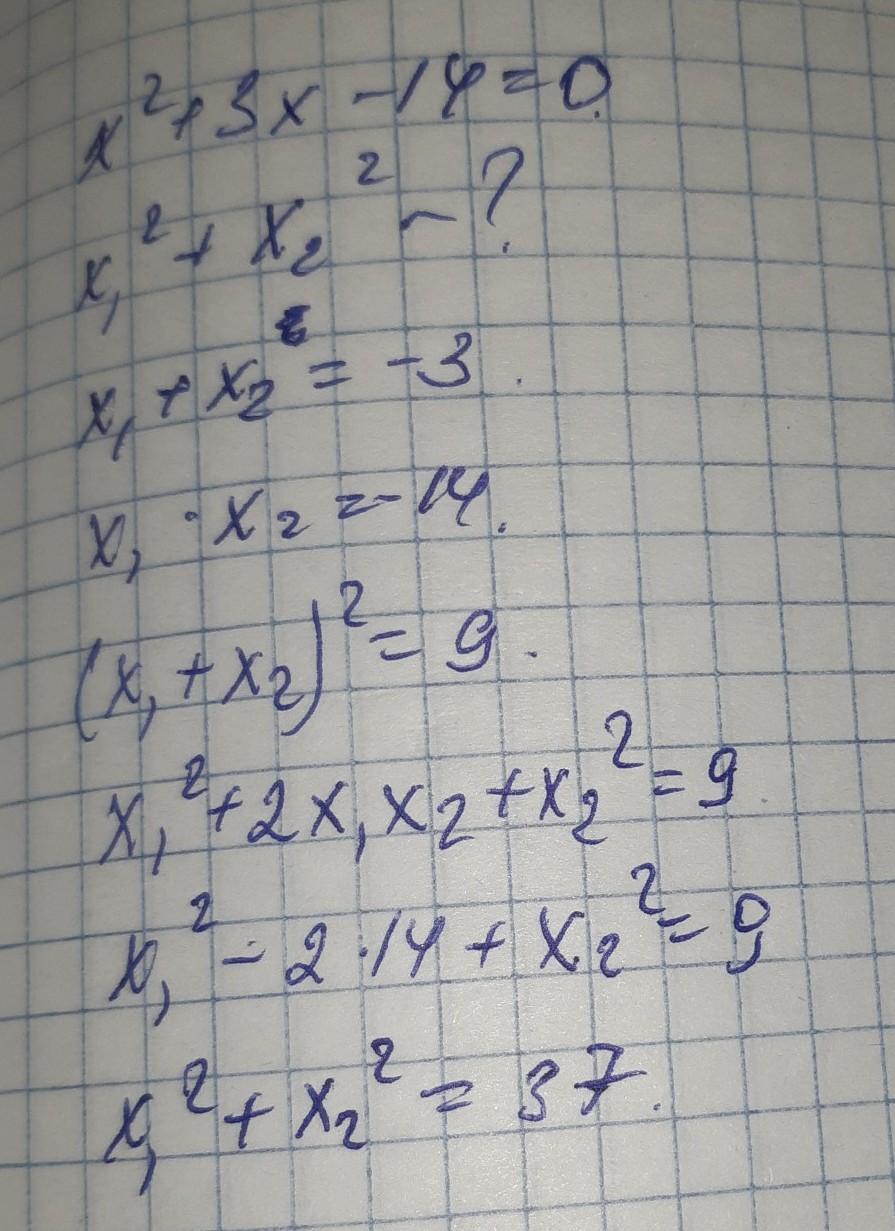 x² + 3x - 14 = 0.
x₁² + x₂² - ?
x₁ + x₂ = -3.
x₁ · x₂ = -14.
(x₁ + x₂)² = 9.
x₁² + 2x₁x₂ + x₂² = 9.
x₁² - 2·14 + x₂² = 9
x₁² + x₂² = 37.